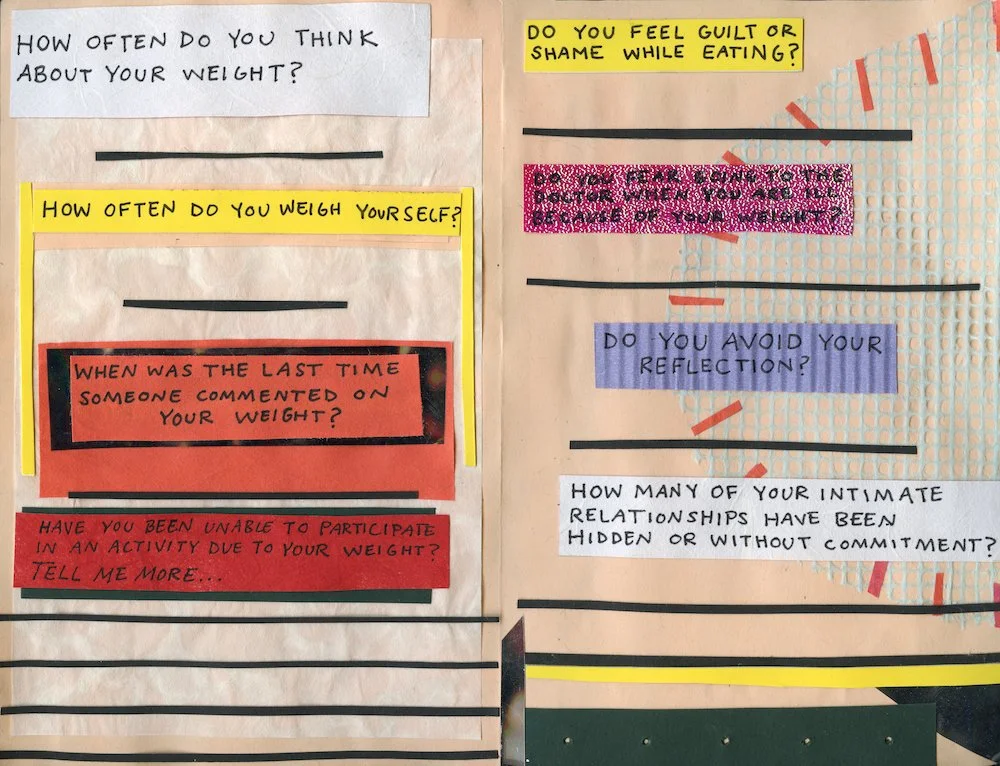 HOW OFTEN DO YOU THINK
ABOUT YOUR WEIGHT?
HOW OFTEN DO YOU WEIGH YOURSELF?
WHEN WAS THE LAST TIME
SOMEONE COMMENTED ON
YOUR WEIGHT?
HAVE YOU BEEN UNABLE TO PARTICIPATE
IN AN ACTIVITY DUE TO YOUR WEIGHT?
TELL ME MORE...
DO YOU FEEL GUILT OR
SHAME WHILE EATING?
DO YOU FEAR GOING TO THE
DOCTOR WHEN YOU ARE ILL
BECAUSE OF YOUR WEIGHT?
DO YOU AVOID YOUR
REFLECTION?
HOW MANY OF YOUR INTIMATE
RELATIONSHIPS HAVE BEEN
HIDDEN OR WITHOUT COMMITMENT?